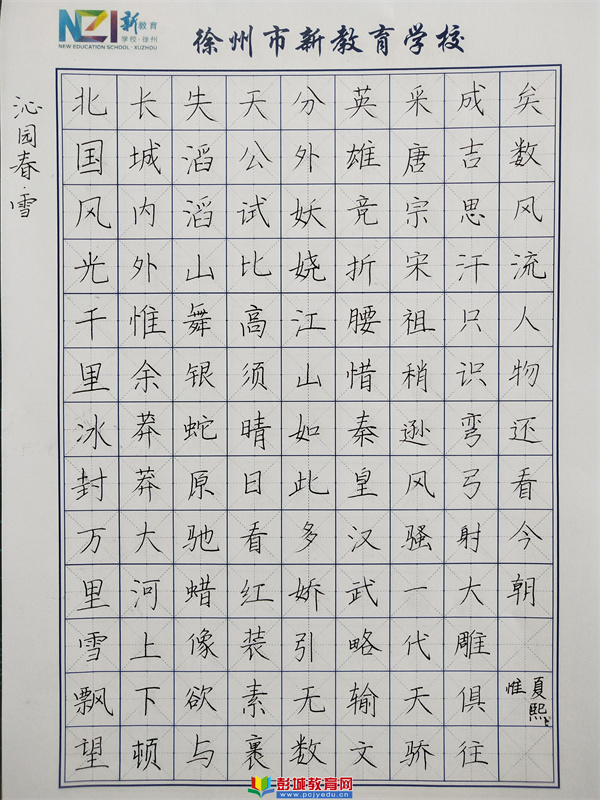 NZI 新教育
学校·徐州
NEW EDUCATION SCHOOL · XUZHOU
徐州市新教育学校
沁园春·雪
北国风光千里冰封万里雪飘望
长城内外惟余莽莽大河上下顿
失滔滔山舞银蛇原驰蜡像欲与
天公试比高须晴日看红装素裹
分外妖娆江山如此多娇引无数
英雄竞折腰惜秦皇汉武略输文
采唐宗宋祖稍逊风骚一代天骄
成吉思汗只识弯弓射大雕俱往
矣数风流人物还看今朝
夏熙
惟
彭城教育网
www.pcjyedu.cn